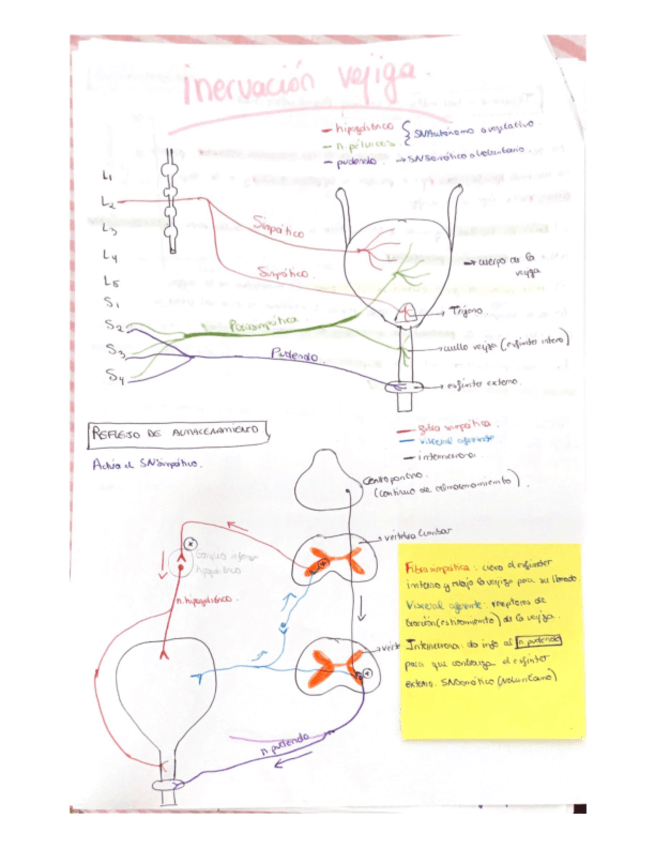 inervación vejiga.
– hipogástrico { SNAutónomo o vegetativo
– n. pélvicos.
– pudendo. → SNSomático o Voluntario.
L1
L2
L3
L4
L5
S1
S2
S3
S4
Simpático
Simpático.
Parasimpática
Pudendo.
→ cuerpo de la
vejiga
→ Trígono.
→ cuello vejiga (esfínter interno)
→ esfínter externo.
REFLEJO DE ALMACENAMIENTO
Actúa el SNSimpático.
– fibra simpática.
– visceral aferente
– interneurona.
Centro pontino.
(continuo de almacenamiento)
→ vértebra lumbar
inferior
hipogástrico
n. hipogástrico.
→ vért
n. pudendo
Fibra simpática: cierra el esfínter
interno y relaja la vejiga para su llenado
Visceral aferente: receptores de
tracción (estiramiento) de la vejiga.
Interneurona. da info al n. pudendo
para que contraiga el esfínter
externo. SNSomático (voluntario)